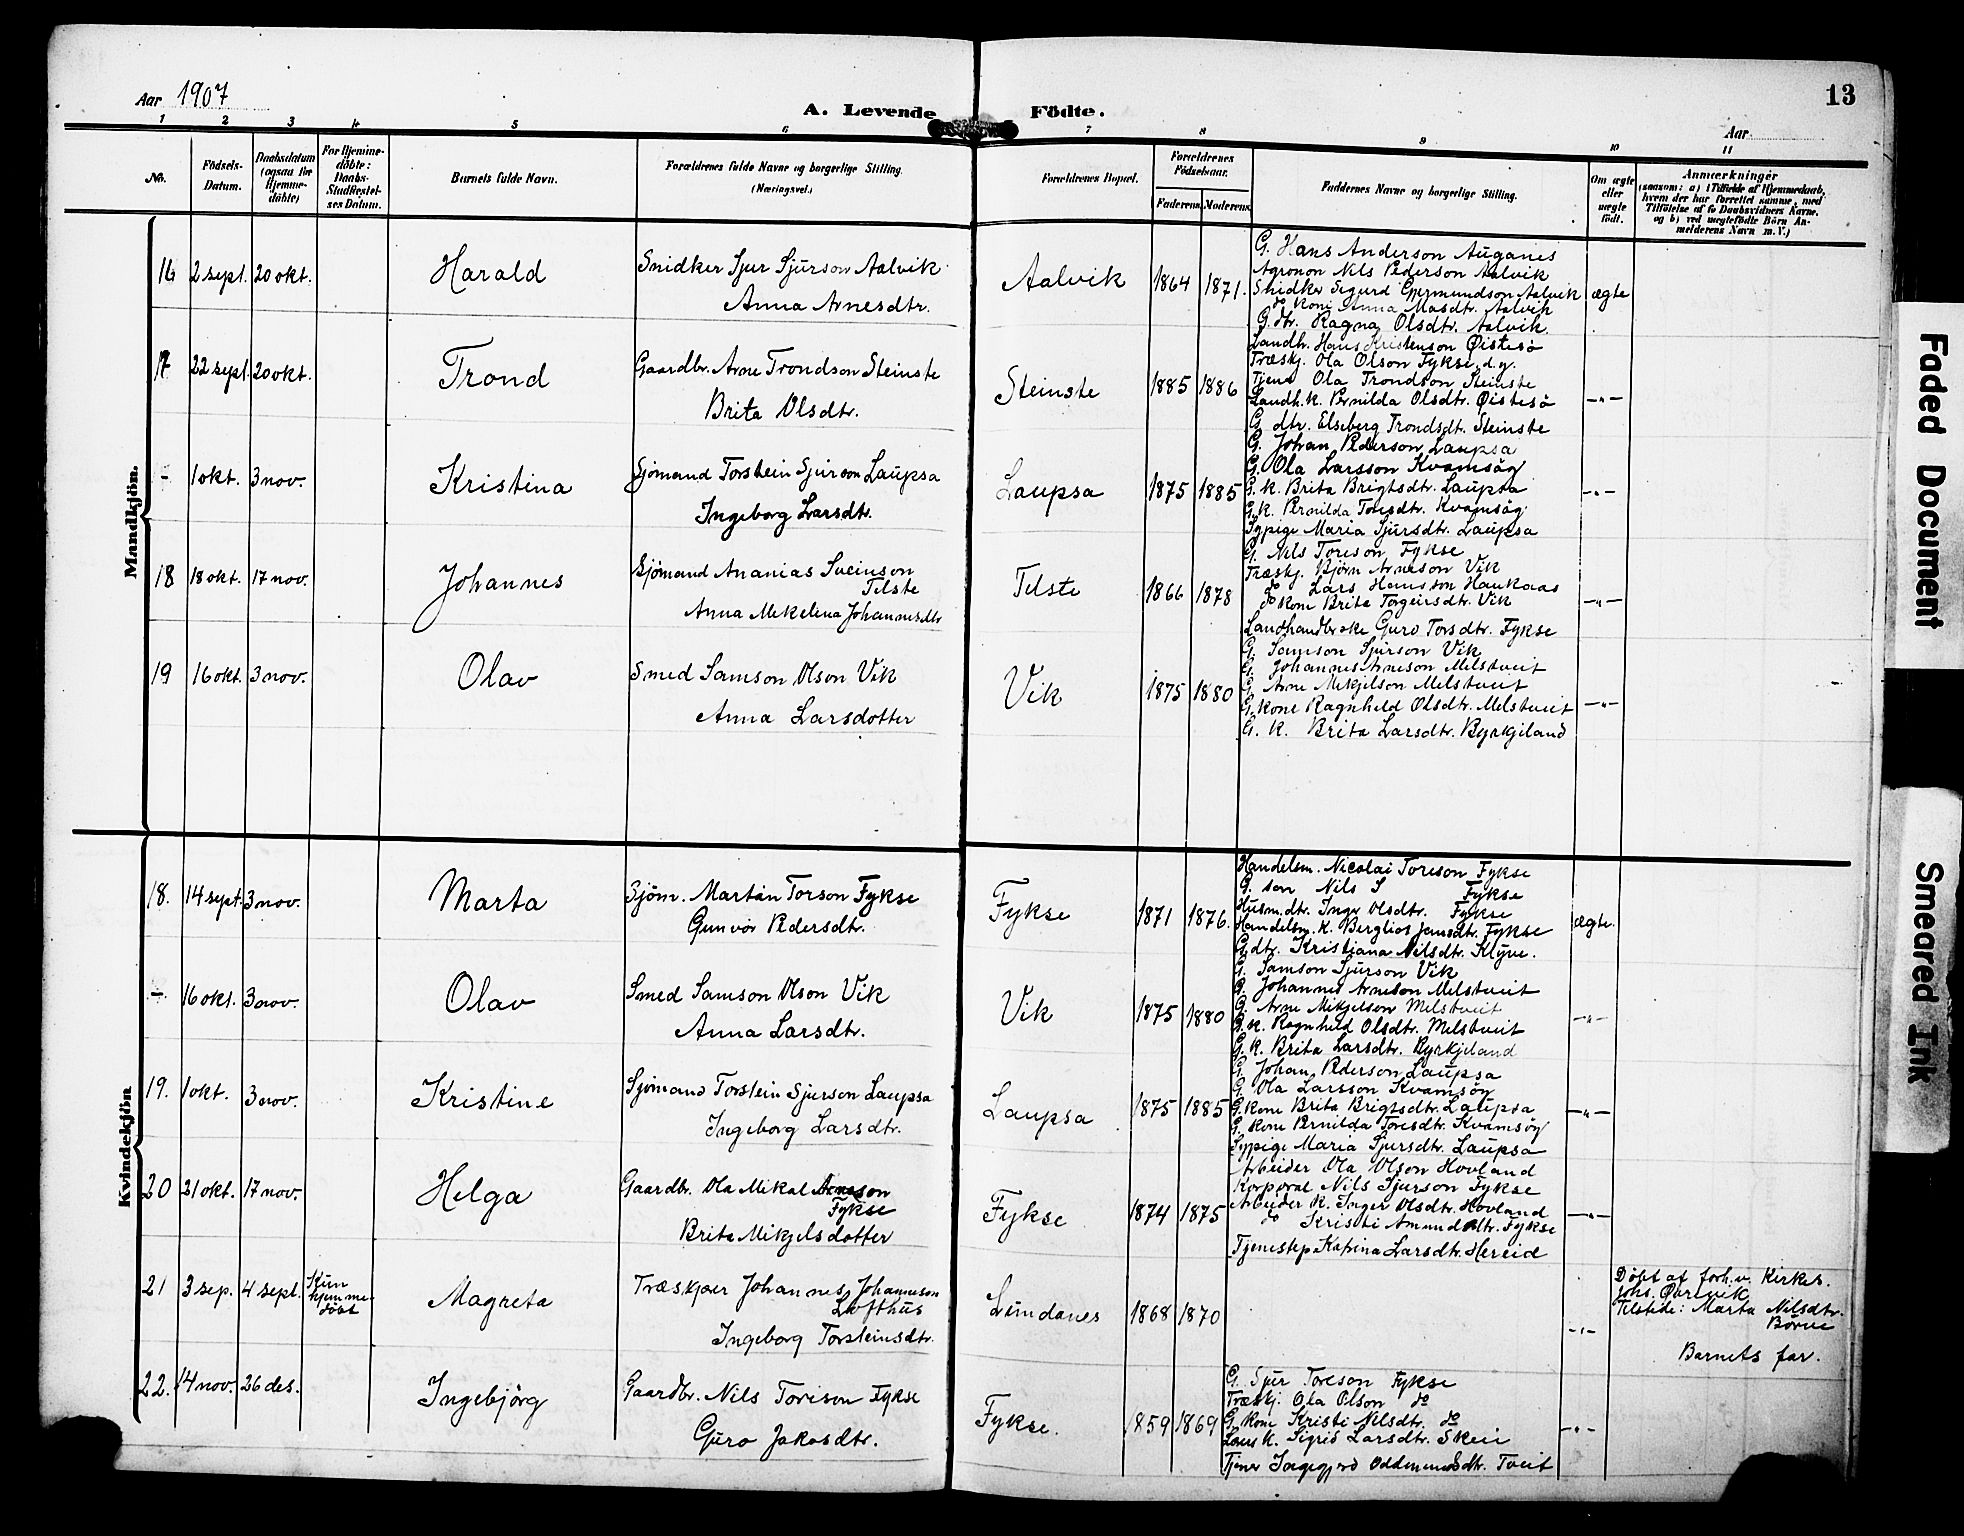 Aar 1907
A. Levende Födte.
13
Aar
1 2 3 4 5 6 7 8 9 10 11
No.
Födsels-Datum.
Daabsdatum (ogsaa for Hjemme-döbte)
For Hjemme-döbte: Daabs-Stadfæstel-ses Datum.
Barnets fulde Navn.
Forældrenes fulde Navne og borgerlige Stilling. (Næringsvei.)
Forældrenes Bopæl.
Forældrenes Födselsaar.
Faderens Moderens
Faddernes Navne og borgerlige Stilling.
Om ægte eller uægte födt.
Anmærkninger
(saasom: a) i Tilfælde af Hjemmedaab, hvem der har forrettet samme, med Tilföielse af to Daabsvidners Navne, og b) ved uægtefödte Börn An-melderens Navn m. V.)
Mandkjön.
16 2 sept. 20 okt. Harald
Snidker Sjur Sjurson Aalvik
Anna Arnesdtr.
Aalvik 1864 1871.
G. Hans Anderson Auganes
Agronom Nils Pederson Aalvik
Snidker Sigurd Aalvik
do kone Anna Masdtr. Aalvik
G. dtr. Ragna Olsdtr. Aalvik.
ægte
17 22 sept. 20 okt. Trond
Gaardbr. Arne Trondson Steinste
Brita Olsdtr.
Steinste 1885 1886
Landh. Hans Kristenson Øistesö
Træskj. Ola Olson Fykse, d.y.
Tjener Ola Trondson Steinste
Landh. k. Pernilda Olsdtr. Øistesö
G. dtr. Elseberg Trondsdt. Steinste
—"—
- 1 okt. 3 nov. Kristina
Sjömand Torstein Sjurson Laupsa
Ingeborg Larsdtr.
Laupsa 1875 1885
G. Johan Pederson Laupsa
G. Ola Larsson Kvamsög
G. k. Brita Brigtsdtr. Laupsa
G. k. Pernilda Toresdtr. Kvamsög
Sypige Maria Sjursdtr. Laupsa
—"—
18 18 okt. 17 nov. Johannes
Sjömand Ananias Sveinson
Tilste
Anna Mekelina Johannesdtr
Tilste 1866 1878
G. Nils Toreson Fykse
Træskj. Björn Arneson Vik
do Lars Hansson Haukaas
do kone Brita Torgeirsdtr. Vik
Landhandlerske Guro Torsdtr. Fykse
—"—
19 16 okt. 3 nov. Olav
Smed Samson Olson Vik
Anna Larsdotter
Vik 1875 1880
G. Samson Sjurson Vik
G. Johannes Arneson Melstveit
G. Arne Mikjelson Melstveit
G. kone Ragnheld Olsdtr. Melstveit
G. k. Brita Larsdtr. Byrkjeland
—"—
Kvindekjön
18. 14 sept. 3 nov. Marta
Sjöm. Martin Torson Fykse
Gunvor Pedersdtr.
Fykse 1871 1876.
Handelsm. Nicolai Toreson Fykse
G. sön Nils S Fykse
Husm. dtr. Inger Olsdtr. Fykse
Handelsm. k. Bergliot Jansdtr. Fykse
G. dtr. Kristiana Nilsdtr. Klyve.
ægte.
- 16 okt. 3 nov. Olav
Smed Samson Olson Vik
Anna Larsdtr.
Vik 1875 1880
G. Samson Sjurson Vik
G. Johannes Arneson Melstveit
G. Arne Mikjelson Melstveit
G. k. Ragnheld Olsdtr. Melstveit
G. k. Brita Larsdtr. Byrkjeland
—"—
19. 1 okt. 3 nov. Kristine
Sjömand Torstein Sjurson Laupsa
Ingeborg Larsdtr.
Laupsa 1875 1885
G. Johan Pederson Laupsa
G. Ola Larsson Kvamsög
G. kone Brita Brigtsdtr. Laupsa
G. kone Pernilda Toresdtr. Kvamsög
Sypige Maria Sjursdtr. Laupsa
—"—
20 21 okt. 17 nov. Helga
Gaardbr. Ola Mikal Arneson
Fykse
Brita Mikjelsdotter
Fykse 1874 1875
Arbeider Ola Olson Hovland
Korporal Nils Sjurson Fykse
Arbeider k. Inger Olsdtr. Hovland
do Kristi Amundsdtr. Fykse
Tjenestep Katrina Larsdtr. Hereid
—"—
21 3 sep. 4 sept. Kun hjemme-döbt Magreta
Træskjær Johannes Johanneson
Lofthus
Ingeborg Torsteinsdtr.
Lundanes 1868 1870
—"—
Döbt af forh.v. Kirkes.
Johs. Øvrevik
Tilstede: Marta Nilsdtr.
Börve
Barnets far.
22. 14 nov. 26 des. Ingebjörg
Gaardbr. Nils Torison Fykse
Guro Jakosdtr.
Fykse. 1859 1869
G. Sjur Toreson Fykse
Træskj. Ola Olson do
G. kone Kristi Nilsdtr. do
k. Sigrid Larsdtr. Skeie
Tjener Ingegjerd Oddmundsdtr. Tveit
—"—
Faded Document
Smeared Ink